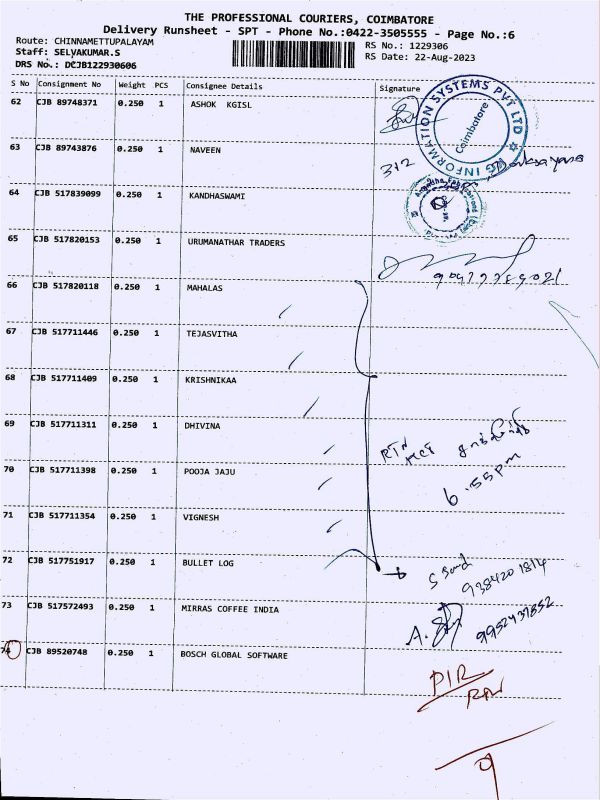 THE PROFESSIONAL COURIERS, COIMBATORE
Delivery Runsheet - SPT - Phone No.:0422-3505555 - Page No.:6
Route: CHINNAMETTUPALAYAM
Staff: SELVAKUMAR.S
DRS No.: DCJB122930606
RS No.: 1229306
RS Date: 22-Aug-2023
S No Consignment No Weight PCS Consignee Details Signature
62 CJB 89748371 0.250 1 ASHOK KGISL
63 CJB 89743876 0.250 1 NAVEEN 312
64 CJB 517839099 0.250 1 KANDHASWAMI
65 CJB 517820153 0.250 1 URUMANATHAR TRADERS
66 CJB 517820118 0.250 1 MAHALAS
67 CJB 517711446 0.250 1 TEJASVITHA
68 CJB 517711409 0.250 1 KRISHNIKAA
69 CJB 517711311 0.250 1 DHIVINA
70 CJB 517711398 0.250 1 POOJA JAJU
6.55pm
71 CJB 517711354 0.250 1 VIGNESH
72 CJB 517751917 0.250 1 BULLET LOG
9384201814
73 CJB 517572493 0.250 1 MIRRAS COFFEE INDIA
9952437852
74 CJB 89520748 0.250 1 BOSCH GLOBAL SOFTWARE
INFORMATION SYSTEMS PVT LTD
Coimbatore